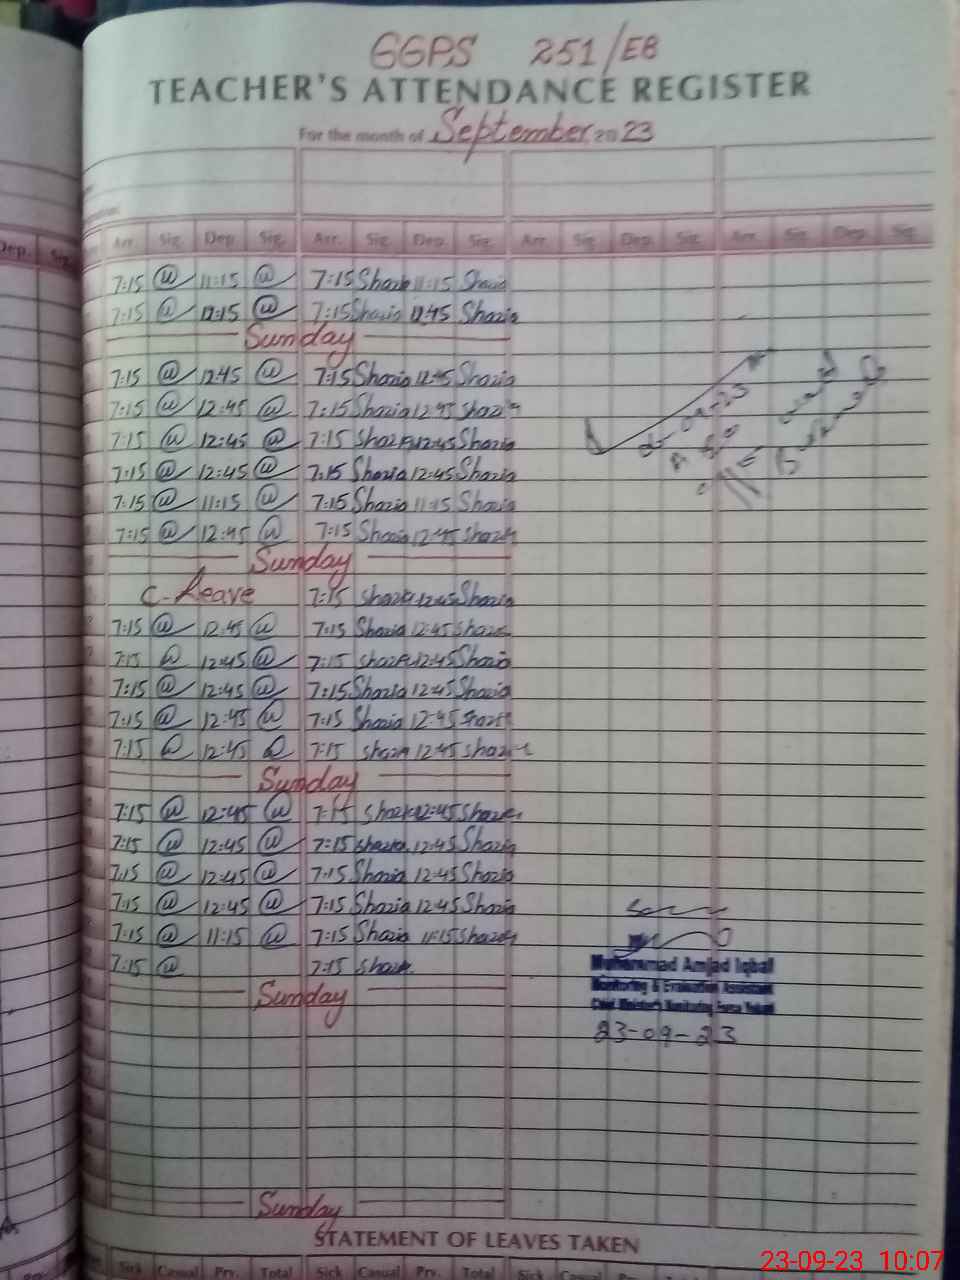 GGPS 251/EB
TEACHER'S ATTENDANCE REGISTER
For the month of September 2023
Dep. Sig. Arr. Sig. Dep. Sig. Arr. Sig. Dep. Sig. Arr. Sig. Dep. Sig. Arr. Sig. Dep. Sig.
7:15 11:15 7:15 Shazia 11:15 Shazia
7:15 12:15 7:15 Shazia 12:45 Shazia
Sunday
7:15 12:45 7:15 Shazia 12:45 Shazia
7:15 12:45 7:15 Shazia 12:45 Shazia
7:15 12:45 7:15 Shazia 12:45 Shazia
7:15 12:45 7:15 Shazia 12:45 Shazia
7:15 11:15 7:15 Shazia 11:15 Shazia
7:15 12:45 7:15 Shazia 12:45 Shazia
Sunday
C-Leave 7:15 Shazia 12:45 Shazia
7:15 12:45 7:15 Shazia 12:45 Shazia
7:15 12:45 7:15 Shazia 12:45 Shazia
7:15 12:45 7:15 Shazia 12:45 Shazia
7:15 12:45 7:15 Shazia 12:45 Shazia
7:15 12:45 7:15 Shazia 12:45 Shazia
Sunday
7:15 12:45 7:15 Shazia 12:45 Shazia
7:15 12:45 7:15 Shazia 12:45 Shazia
7:15 12:45 7:15 Shazia 12:45 Shazia
7:15 12:45 7:15 Shazia 12:45 Shazia
7:15 11:15 7:15 Shazia 11:15 Shazia
7:15 7:15 Shazia
Sunday
Muhammad Amjad Iqbal
Monitoring & Evaluation Assistant
Chief Minister's Monitoring Force
23-09-23
Sunday
STATEMENT OF LEAVES TAKEN
Sick Casual Prv. Total Sick Casual Prv. Total Sick Casual Prv. Total Sick Casual Prv. Total
23-09-23 10:07